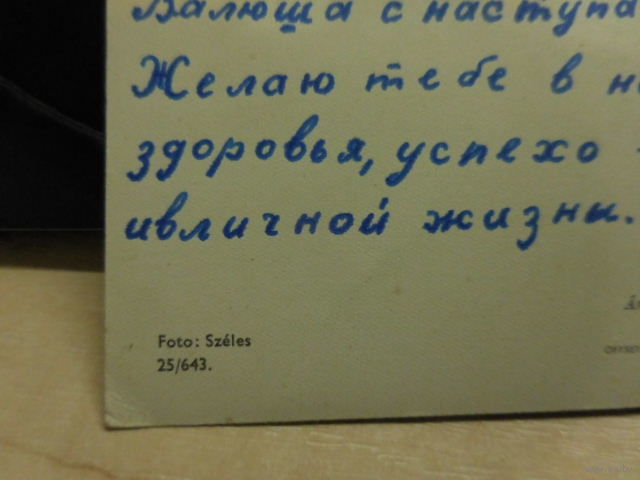 Валюша с наступа
Желаю тебе в но
здоровья, успехо
ивличной жизни.
Foto: Széles
25/643.